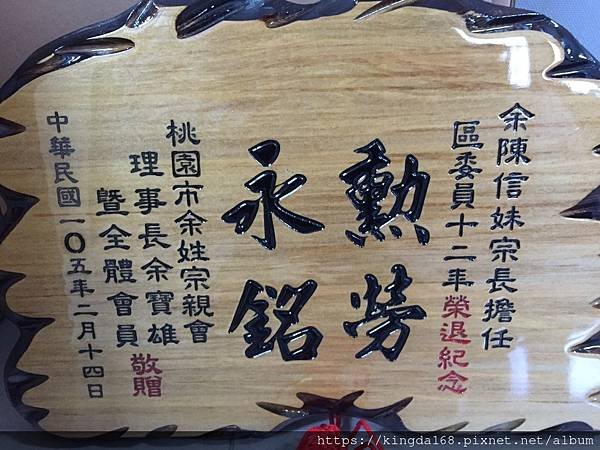 余陳信妹宗長擔任
區委員十二年榮退紀念
勲勞
永銘
桃園市余姓宗親會
理事長余寶雄
暨全體會員敬贈
中華民國一〇五年二月十四日
https://kingda168.pixnet.net/album